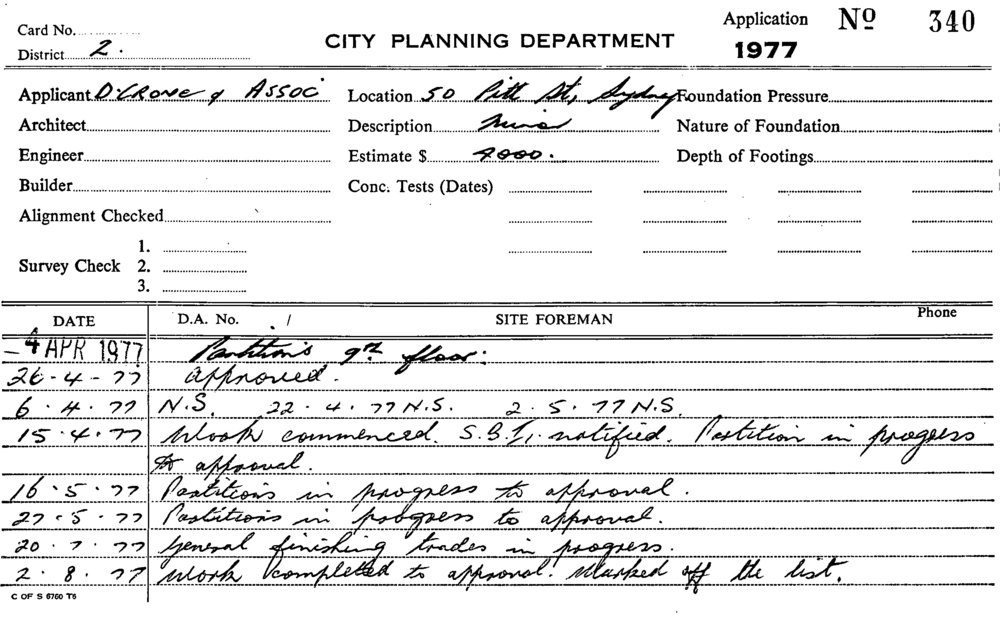 Card No.
District 2.
CITY PLANNING DEPARTMENT
Application Nº 340
1977
Applicant D'CRONE & ASSOC Location 50 Pitt St, Sydney Foundation Pressure
Architect Description Minor Nature of Foundation
Engineer Estimate $ 9000. Depth of Footings
Builder Conc. Tests (Dates)
Alignment Checked
1.
Survey Check 2.
3.
DATE D.A. No. / SITE FOREMAN Phone
-4 APR 1977 Partitions 9th floor:
26-4-77 Approved.
6.4.77 N.S. 22.4.77 N.S. 2.5.77 N.S.
15.4.77 Work commenced. notified. Partition in progress
to approval.
16.5.77 Partitions in progress to approval.
27.5.77 Partitions in progress to approval.
20.7.77 General finishing trades in progress.
2.8.77 Work completed to approval. Marked off the list.
C OF S 6760 T6